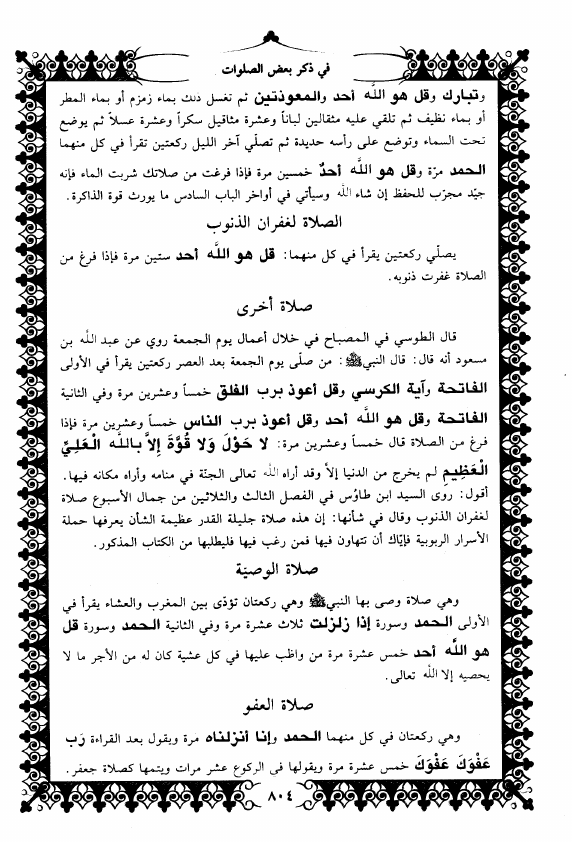 في ذكر بعض الصلوات
وتبارك وقل هو اللّٰه أحد والمعوذتين ثم تغسل ذلك بماء زمزم أو بماء المطر
أو بماء نظيف ثم تلقي عليه مثقالين لباناً وعشرة مثاقيل سكراً وعشرة عسلاً ثم يوضع
تحت السماء وتوضع على رأسه حديدة ثم تصلّي آخر الليل ركعتين تقرأ في كل منهما
الحمد مرّة وقل هو اللّٰه أحدٌ خمسين مرة فإذا فرغت من صلاتك شربت الماء فإنه
جيّد مجرّب للحفظ إن شاء الله وسيأتي في أواخر الباب السادس ما يورث قوة الذاكرة.
الصلاة لغفران الذنوب
يصلّي ركعتين يقرأ في كل منهما: قل هو اللّٰه أحد ستين مرة فإذا فرغ من
الصلاة غفرت ذنوبه.
صلاة أخرى
قال الطوسي في المصباح في خلال أعمال يوم الجمعة روي عن عبد الله بن
مسعود أنه قال: قال النبي ﷺ: من صلّى يوم الجمعة بعد العصر ركعتين يقرأ في الأولى
الفاتحة وآية الكرسي وقل أعوذ برب الفلق خمساً وعشرين مرة وفي الثانية
الفاتحة وقل هو اللّٰه أحد وقل أعوذ برب الناس خمساً وعشرين مرة فإذا
فرغ من الصلاة قال خمساً وعشرين مرة: لا حَوْلَ وَلا قُوَّةَ إِلاَّ بِاللّٰه الْعَلِيِّ
الْعَظِيمِ لم يخرج من الدنيا إلاّ وقد أراه الله تعالى الجنّة في منامه وأراه مكانه فيها.
أقول: روى السيد ابن طاؤس في الفصل الثالث والثلاثين من جمال الأسبوع صلاة
لغفران الذنوب وقال في شأنها: إن هذه صلاة جليلة القدر عظيمة الشأن يعرفها حملة
الأسرار الربوبية فإيّاك أن تتهاون فيها فمن رغب فيها فليطلبها من الكتاب المذكور.
صلاة الوصيّة
وهي صلاة وصى بها النبي ﷺ وهي ركعتان تؤدّى بين المغرب والعشاء يقرأ في
الأولى الحمد وسورة إذا زلزلت ثلاث عشرة مرة وفي الثانية الحمد وسورة قل
هو اللّٰه أحد خمس عشرة مرة من واظب عليها في كل عشية كان له من الأجر ما لا
يحصيه إلا الله تعالى.
صلاة العفو
وهي ركعتان في كل منهما الحمد وإنا أنزلناه مرة ويقول بعد القراءة رَب
عَفْوَكَ عَفْوَكَ خمس عشرة مرة ويقولها في الركوع عشر مرات ويتمها كصلاة جعفر.
٨٠٤